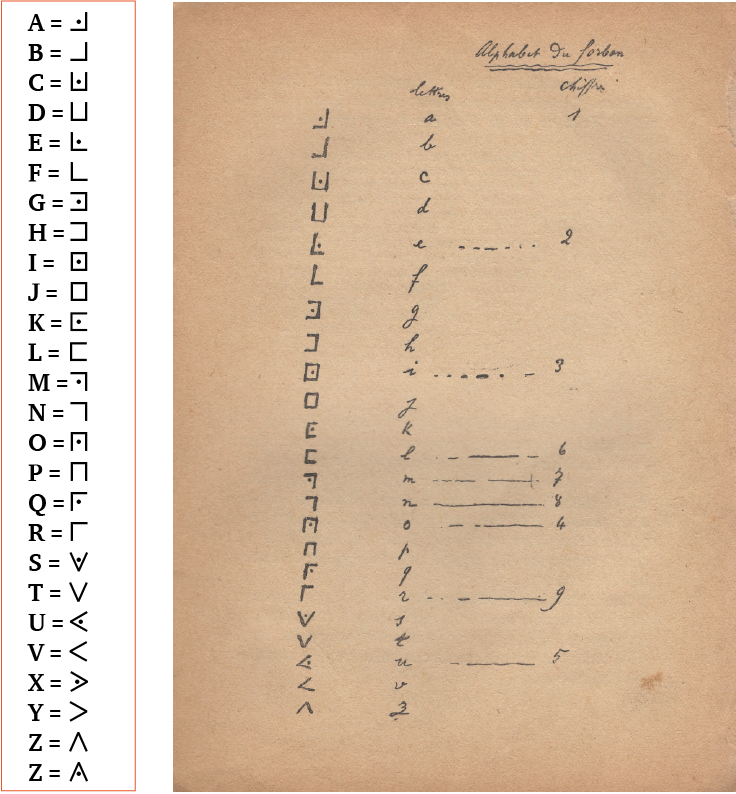 A =
B =
C =
D =
E =
F =
G =
H =
I =
J =
K =
L =
M =
N =
O =
P =
Q =
R =
S =
T =
U =
V =
X =
Y =
Z =
Z =
Alphabet Du forban
lettres chiffres
a 1
b
c
d
e 2
f
g
h
i 3
j
k
l 6
m 7
n 8
o 4
p
q
r 9
s
t
u 5
v
z